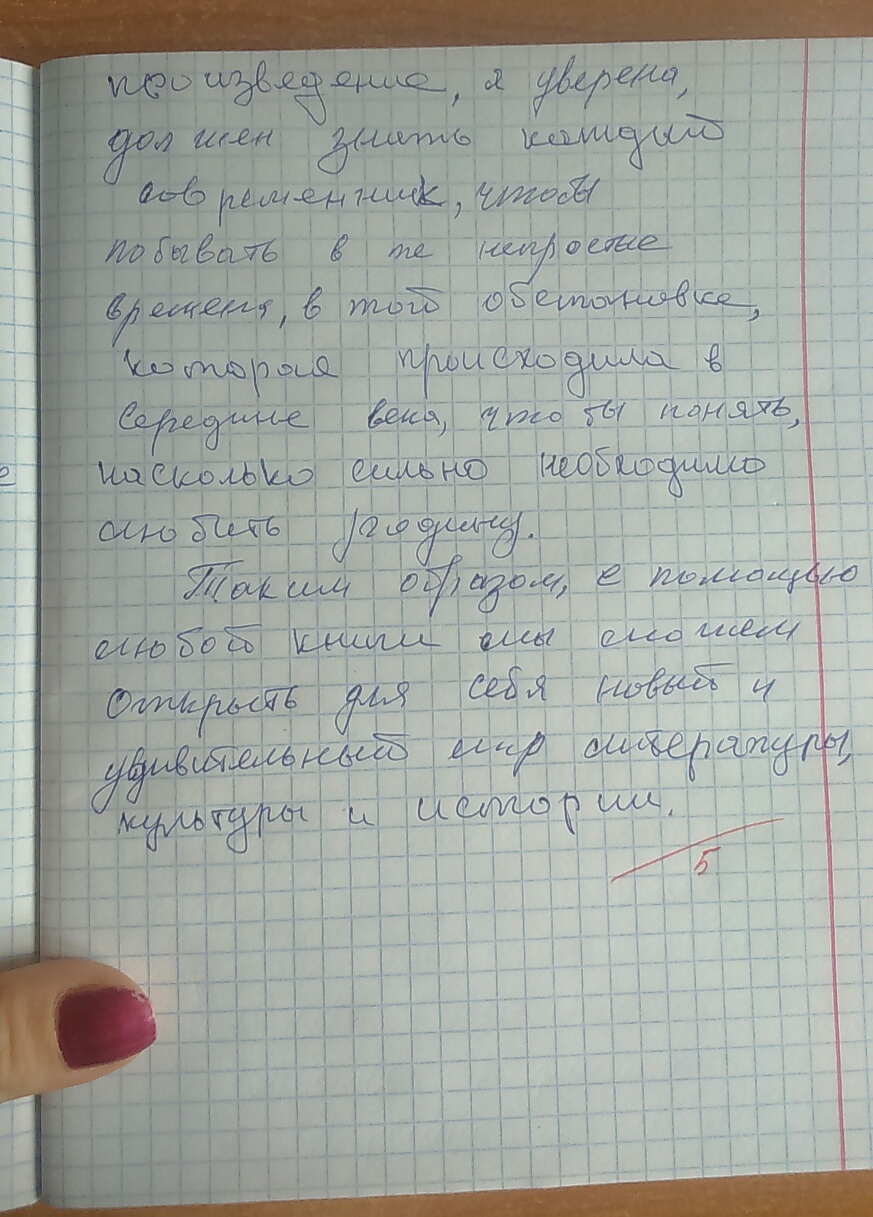 произведение, я уверена,
должен знать каждый
современник, чтобы
побывать в те непростые
времена, в той обстановке,
которая происходила в
середине века, чтобы понять,
насколько сильно необходимо
любить родину.
Таким образом, с помощью
любой книги мы сможем
открыть для себя новый и
удивительный мир литературы,
культуры и истории.
5
е